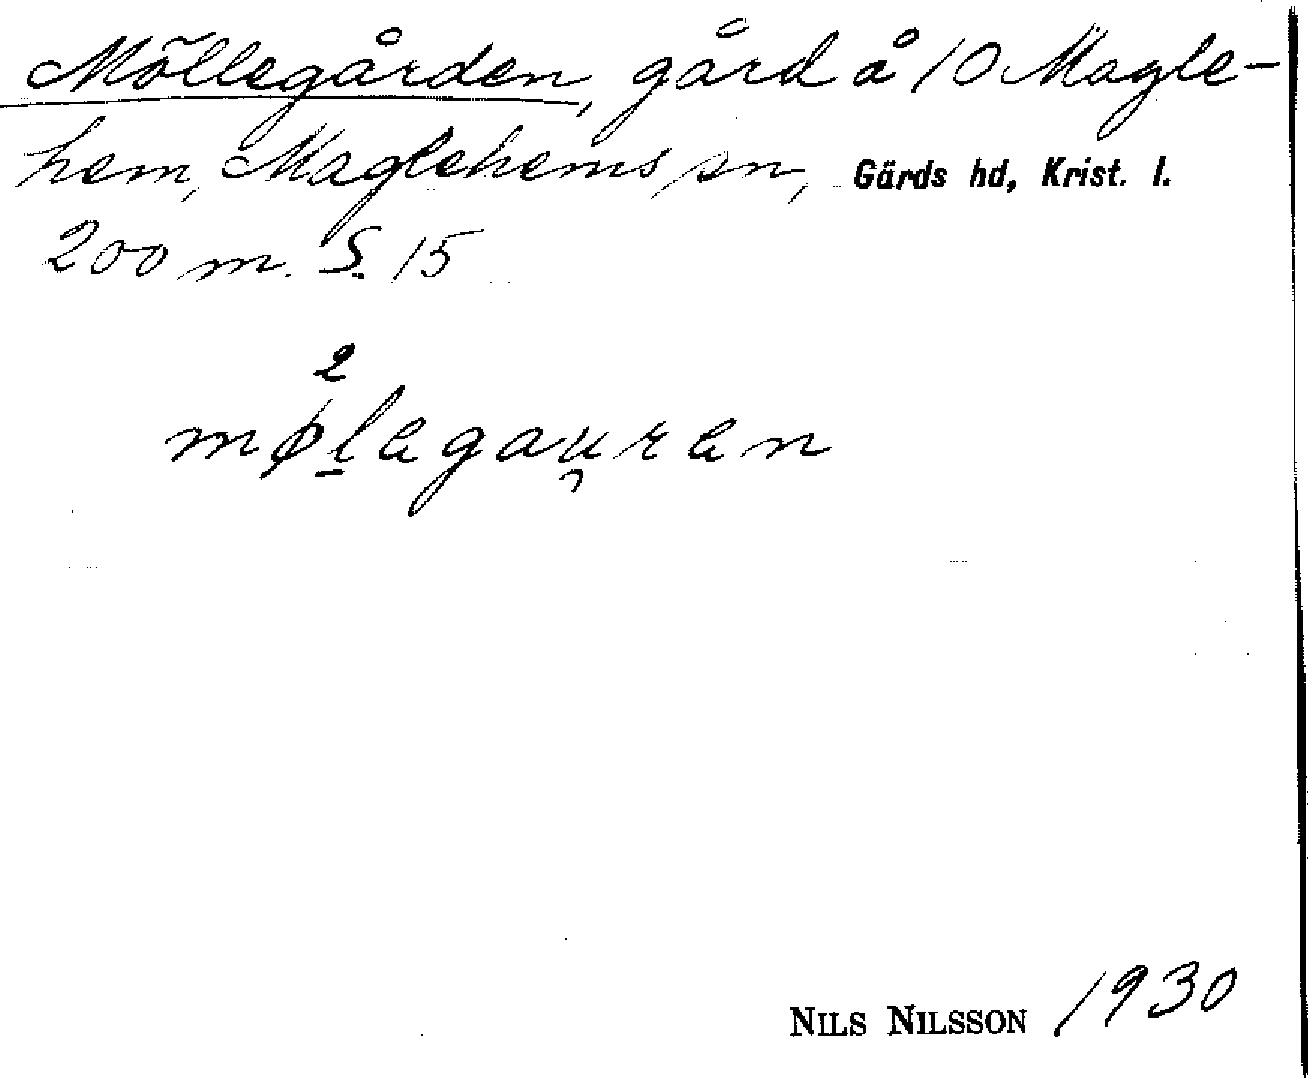 Möllegården, gård å 10 Magle-
hem, Maglehems sn, Gärds hd, Krist. l.
200 m. S. 15
2
møl̲agau̯ran
NILS NILSSON 1930